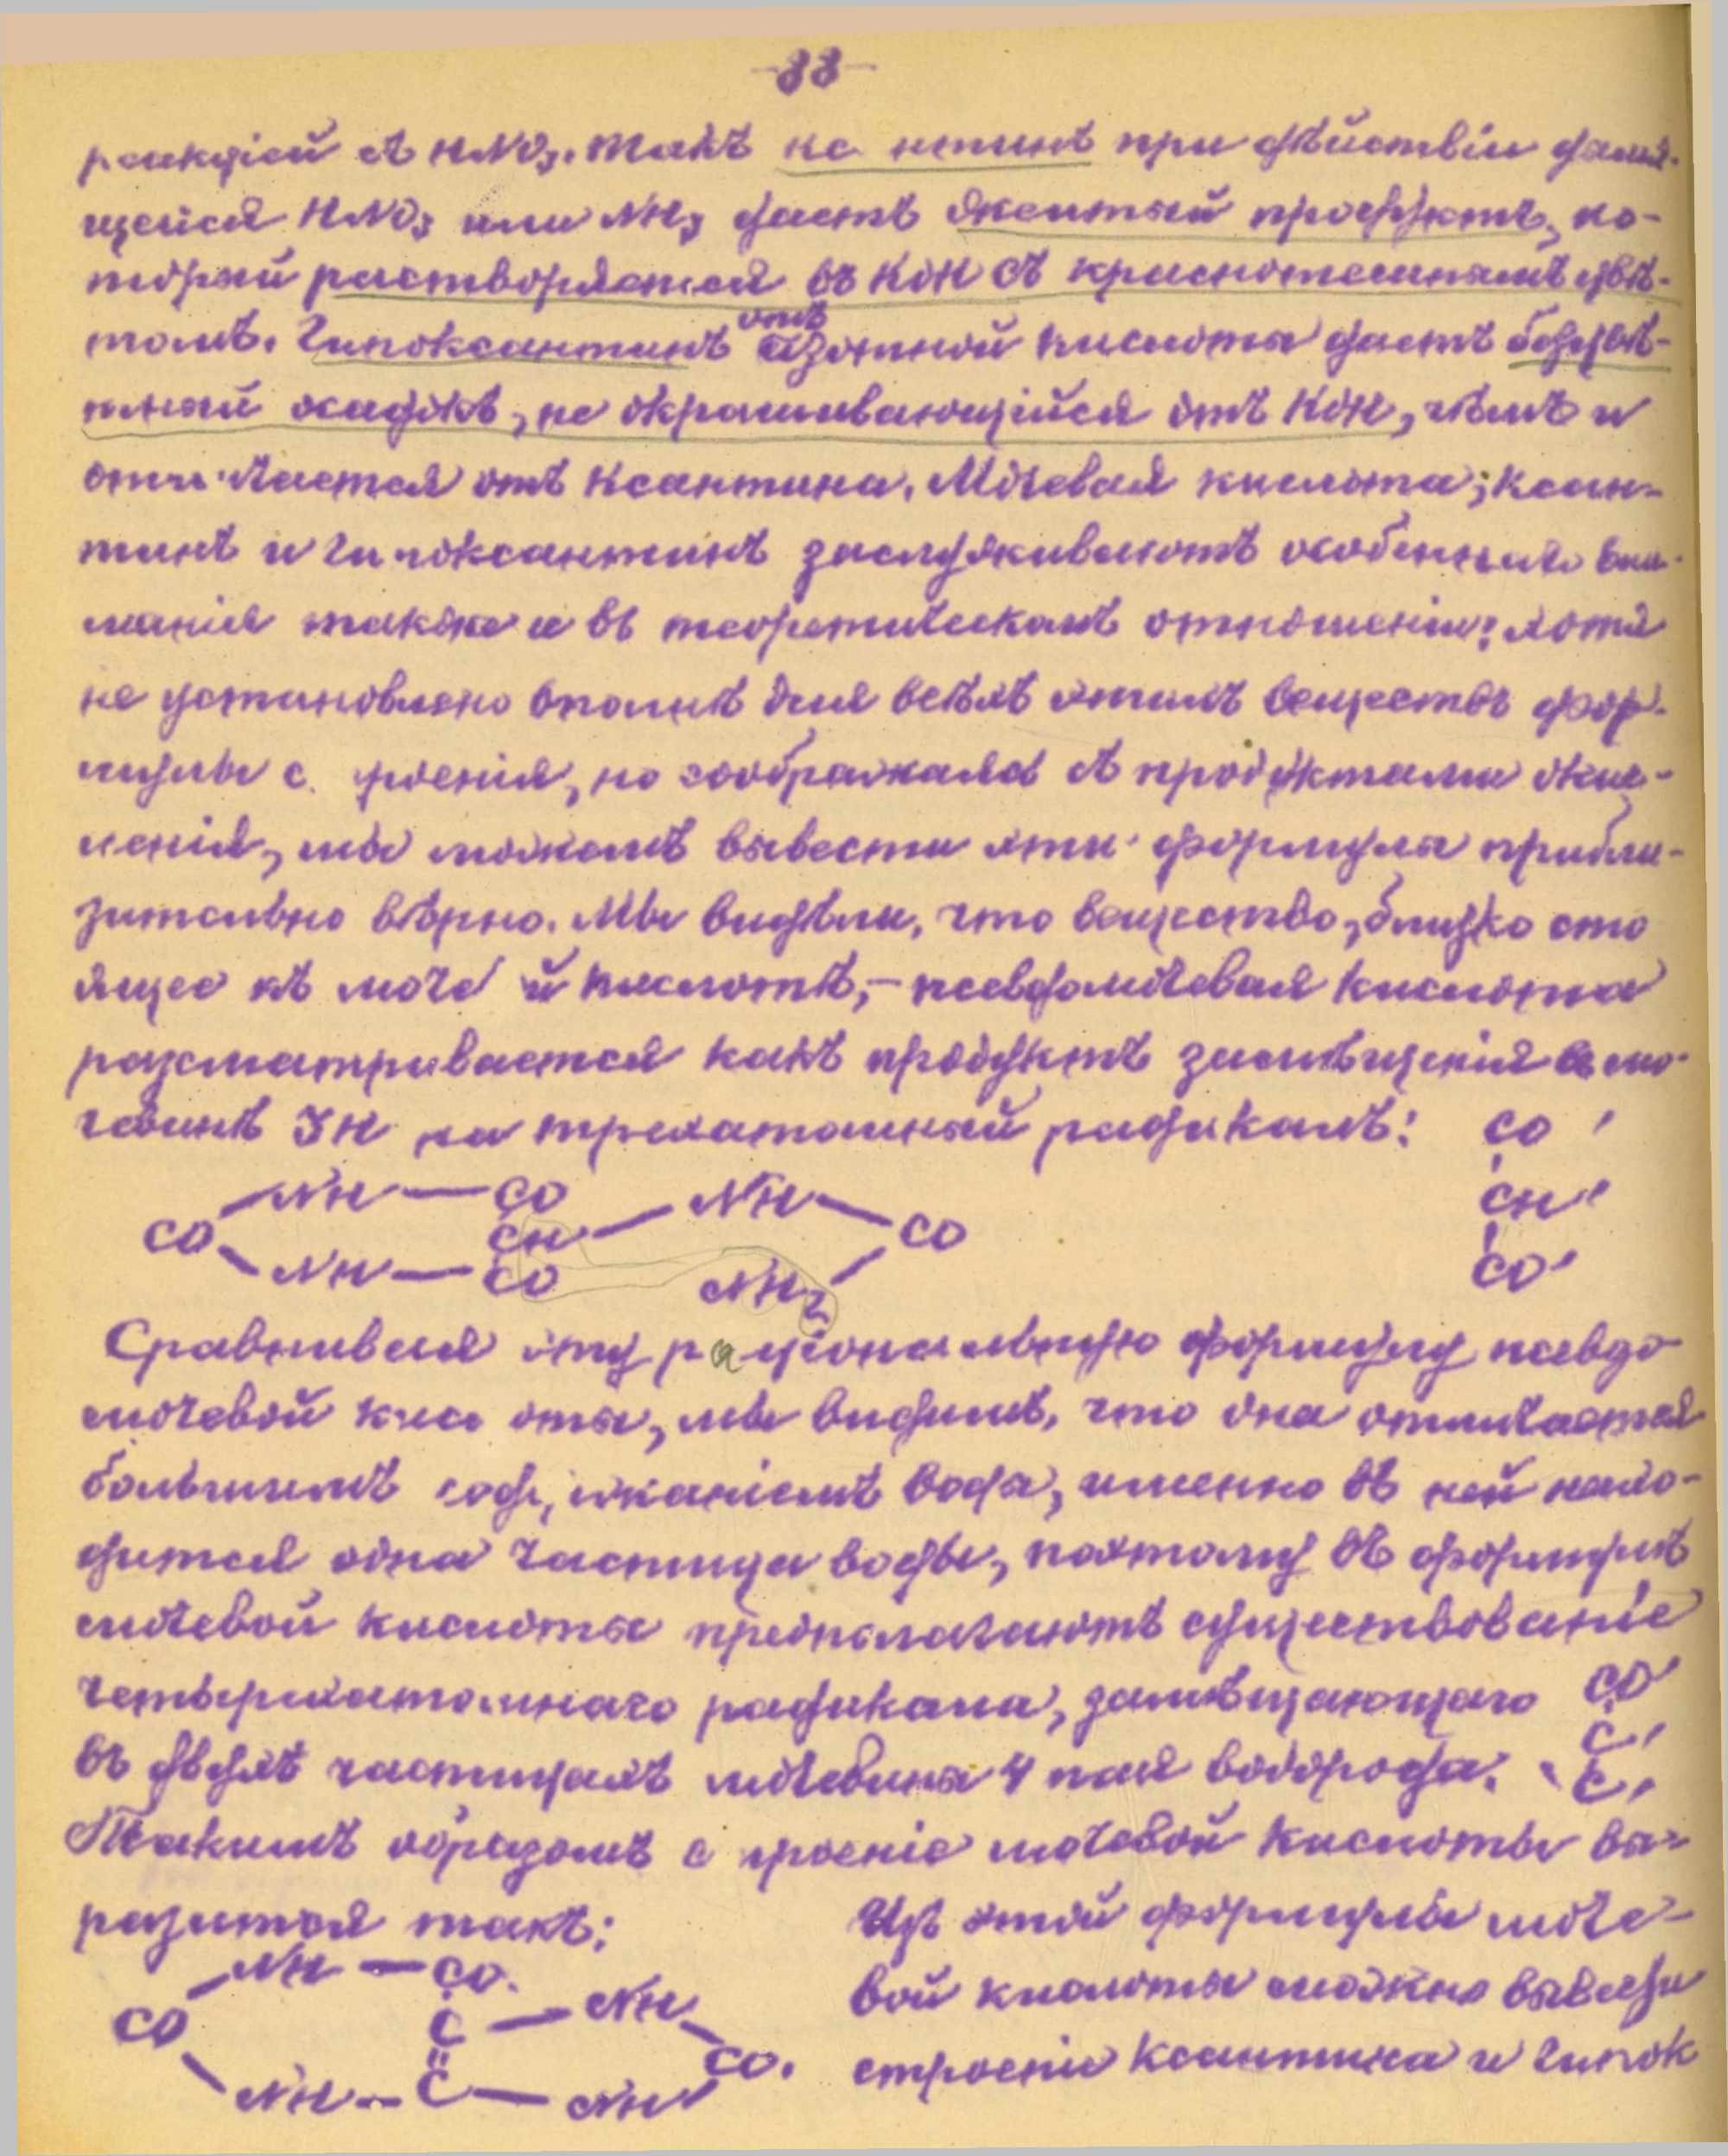 -88-
реакціей съ HNO3. Такъ ксантинъ при дѣйствіи дымя-
щейся HNO3 или NH3 даетъ желтый продуктъ, ко-
торый растворяется въ KOH съ краснотемнымъ цвѣ-
томъ. Гипоксантинъ отъ азотной кислоты даетъ безцвѣ-
тный осадокъ, не окрашивающійся отъ KOH, чѣмъ и
отличается отъ ксантина. Мочевая кислота, ксан-
тинъ и гипоксантинъ заслуживаютъ особенна вни-
манія также и въ теоретическомъ отношеніи: хотя
не установлено вполнѣ для всѣхъ этихъ веществъ фор-
мулы строенія, но соображаясь съ продуктами оки-
сленія, мы можемъ вывести эти формулы прибли-
зительно вѣрно. Мы видѣли, что вещество, близко сто
ящее къ мочевой кислотѣ, - псевдомочевая кислота
разсматривается какъ продуктъ замѣщенія въ мо-
чевинѣ 3H на трехатомный радикалъ: CO '
CH '
CO '
NH — CO NH
CO CH — CO
NH — CO NH2
Сравнивая эту раціональную формулу псевдо
мочевой кислоты, мы видимъ, что она отличается
большимъ содержаніемъ воды, именно въ ней нахо-
дится одна частица воды, поэтому въ формулѣ
мочевой кислоты предполагаютъ существованіе
четырехатомнаго радикала, замѣщающаго CO '
C '
въ двухъ частицахъ мочевины 4 пая водорода. C '
Такимъ образомъ строеніе мочевой кислоты вы-
разится такъ: Изъ этой формулы моче-
вой кислоты можно вывести
строеніе ксантина и гипок
NH — CO
CO C — NH
CO.
NH — C — NH